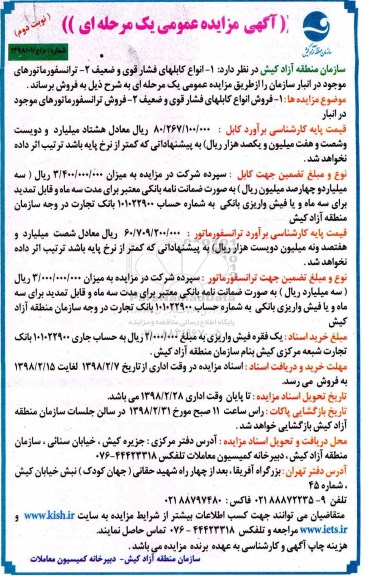 (( آگهی مزایده عمومی یک مرحله ای ))
( نوبت دوم )
سازمان منطقه آزاد کیش
سازمان منطقه آزاد کیش در نظر دارد: ۱- انواع کابلهای فشار قوی و ضعیف ۲- ترانسفورماتورهای
موجود در انبار سازمان را از طریق مزایده عمومی یک مرحله ای به شرح ذیل به فروش برساند .
موضوع مزایده ها : ۱- فروش انواع کابلهای فشار قوی و ضعیف ۲- فروش ترانسفورماتورهای موجود
در انبار
قیمت پایه کارشناسی برآورد کابل : ۸۰/۲۶۷/۱۰۰/۰۰۰ ریال معادل هشتاد میلیارد و دویست
وشصت و هفت میلیون و یکصد هزار ریال) به پیشنهاداتی که کمتر از نرخ پایه باشد ترتیب اثر داده
نخواهد شد .
نوع و مبلغ تضمین جهت کابل : سپرده شرکت در مزایده به میزان ۳/۴۰۰/۰۰۰/۰۰۰ ریال ( سه
میلیاردو چهارصد میلیون ریال ) به صورت ضمانت نامه بانکی معتبر برای مدت سه ماه و قابل تمدید
برای سه ماه و یا فیش واریزی بانکی به شماره حساب ۱۰۱۰۲۲۹۰۰ بانک تجارت در وجه سازمان
منطقه آزاد کیش
قیمت پایه کارشناسی برآورد ترانسفورماتور : ۶۰/۷۰۹/۲۰۰/۰۰۰ ریال معادل شصت میلیارد و
هفتصد ونه میلیون دویست هزار ریال) به پیشنهاداتی که کمتر از نرخ پایه باشد ترتیب اثر داده
نخواهد شد .
نوع و مبلغ تضمین جهت ترانسفورماتور : سپرده شرکت در مزایده به میزان ۳/۰۰۰/۰۰۰/۰۰۰ ریال
( سه میلیارد ریال ) به صورت ضمانت نامه بانکی معتبر برای مدت سه ماه و قابل تمدید برای سه
ماه و یا فیش واریزی بانکی به شماره حساب ۱۰۱۰۲۲۹۰۰ بانک تجارت در وجه سازمان منطقه آزاد
کیش
مبلغ خرید اسناد : یک فقره فیش واریزی به مبلغ ۲/۰۰۰/۰۰۰ ریال به حساب جاری ۱۰۱۰۲۲۹۰۰ بانک
تجارت شعبه مرکزی کیش بنام سازمان منطقه آزاد کیش .
مهلت خرید و دریافت اسناد : اسناد مزایده در وقت اداری از تاریخ ۱۳۹۸/۲/۷ لغایت ۱۳۹۸/۲/۱۵
به فروش می رسد.
تاریخ تحویل اسناد مزایده : تا پایان وقت اداری ۱۳۹۸/۲/۲۸ می باشد.
تاریخ بازگشایی پاکات : راس ساعت ۱۱ صبح مورخ ۱۳۹۸/۲/۳۱ در سالن جلسات سازمان منطقه
آزاد کیش بازگشایی خواهد شد .
محل دریافت و تحویل اسناد مزایده : آدرس دفتر مرکزی : جزیره کیش ، خیابان سنائی ، سازمان
منطقه آزاد کیش ، دبیرخانه کمیسیون معاملات تلفکس ۴۴۴۲۳۳۱۸-۰۷۶
آدرس دفتر تهران : بزرگراه آفریقا ، بعد از چهار راه شهید حقانی ( جهان کودک ) نبش خیابان کیش
، شماره ۴۵
تلفن ۹- ۸۸۸۷۲۲۳۵ ۰۲۱ فاکس: ۸۸۷۹۷۴۸۰ ۰۲۱
متقاضیان می توانند جهت کسب اطلاعات بیشتر از شرایط مزایده به سایت www.kish.ir و
www.iets.ir مراجعه و تلفکس ۴۴۴۲۳۳۱۸ - ۰۷۶ تماس حاصل نمایند.
هزینه چاپ آگهی و کارشناسی به عهده برنده مزایده می باشد .
سازمان منطقه آزاد کیش- دبیرخانه کمیسیون معاملات